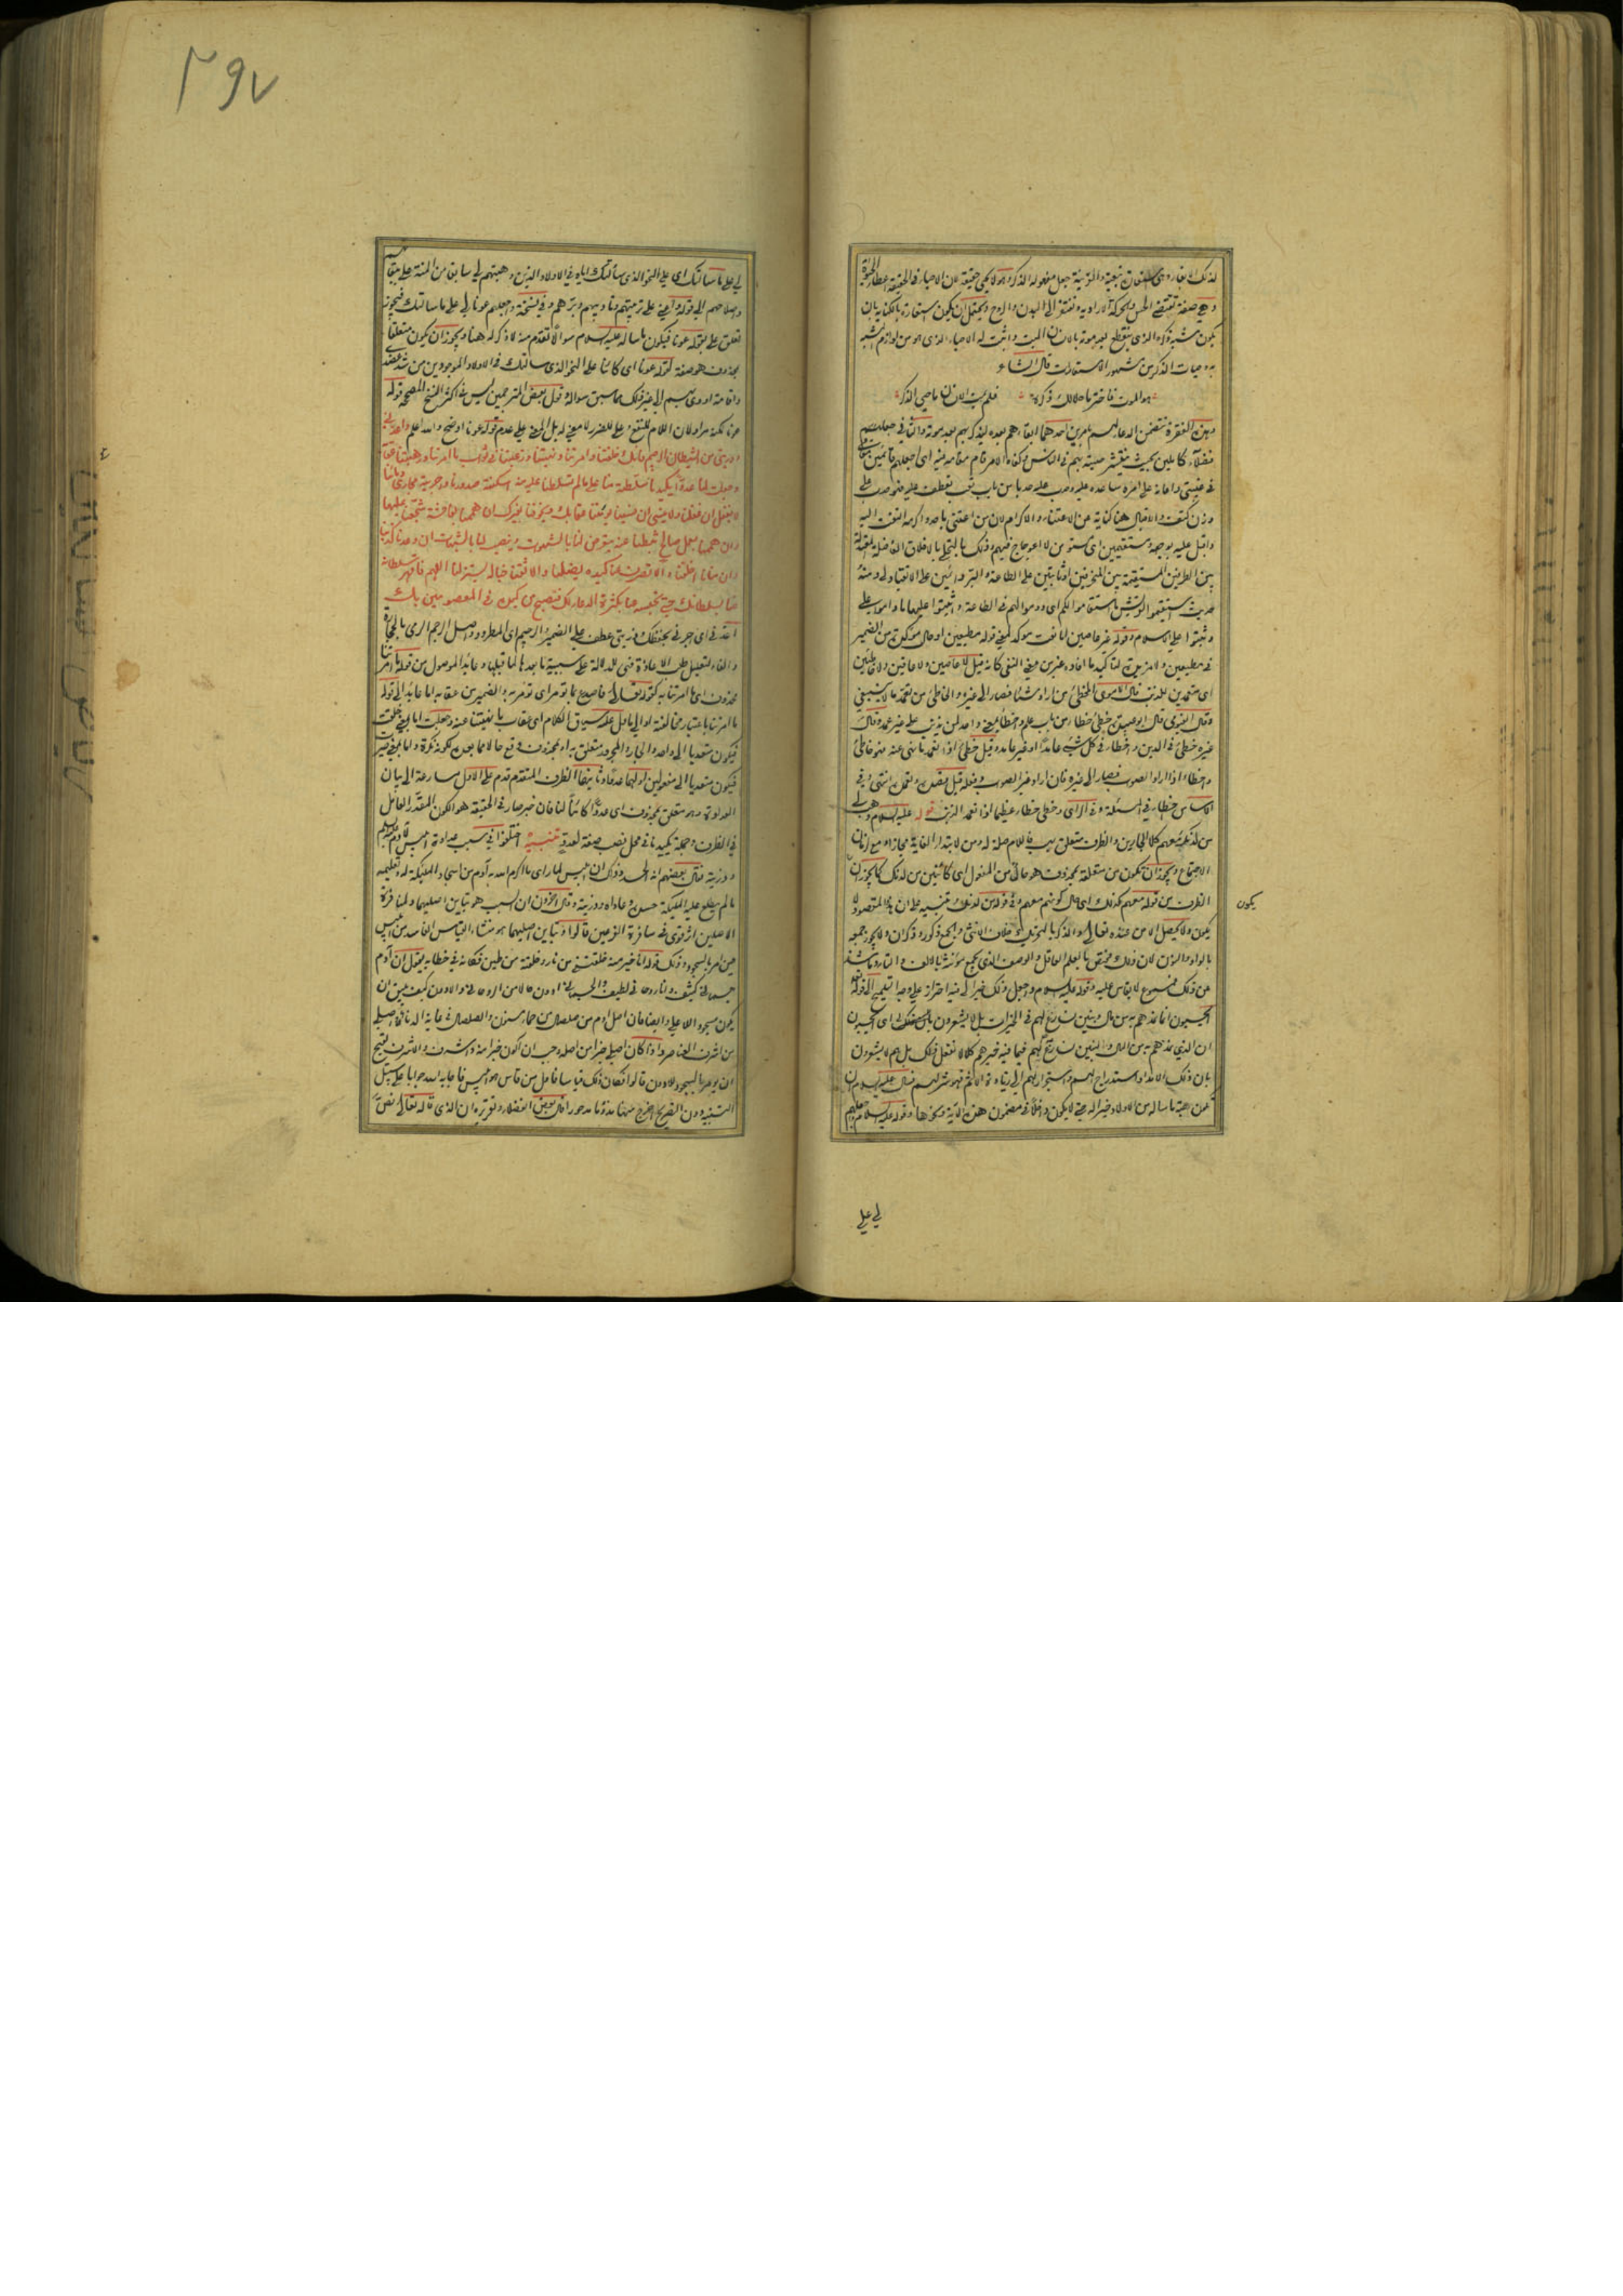 لذلك الابقاء وهى استعارة تبعية والقرينة جعل مفعوله الذكر وهو لا يحيى حقيقة لان الاحياء فى الحقيقة اعطاء الحيوة
وهي صفة تقتضى الحس والحركة الارادية وتفتقر الى البدن والروح ويحتمل ان يكون استعارة بالكناية بان
يكون شبه ذكره الذى ينقطع بعد موته بالانسان الميت واثبت له الاحياء الذى هو من لوازم المشبه
به وحيات الذكر من مشهور الاستعارات قال الشاعر
هو الموت فاختر ما علا لك ذكره فلم يمت الانسان ما حيى الذكر
وهذه الفقرة تتضمن الدعاء لهم بامرين احدهما ابقاءهم بعده ليذكر بهم بعد موته والثانى جعلهم
فضلاء كاملين بحيث ينتشر صيته بهم فى الناس وكفاه الامر قام مقامه فيه اى اجعلهم قائمين مقامى
فى غيبتى واعانه على امره ساعده عليه وحدب عليه حدبا من باب تعب تعطف عليه فهو حدب على
وزن كتف والاقبال هنا كناية عن الاعتناء والاكرام لان من اعتنى باحد واكرمه التفت اليه
واقبل عليه بوجهه ومستقيمين اى مستوين لا اعوجاج فيهم وذلك بالتحلى بالاخلاق الفاضلة المتوسطة
بين الطرفين
وثبتوا على الاسلام وقوله غير عاصين اما نعت موكد لمعنى قوله مطيعين او حال موكدة من الضمير
فى مطيعين ولا مزيدة لتاكيد ما افاده غير من معنى النفى كانه قيل لا عاصين ولا عاقين ولا خاطئين
اى متعمدين للذنب قال الاموى المخطئ من اراد شيئا فصار الى غيره والخاطئ من تعمد ما لا ينبغى
وقال ابو عبيدة خطئ خطا من باب علم واخطأ بمعنى واحد لمن يذنب على غير عمد وقال
غيره خطئ فى الدين واخطأ فى كل شئ عامدا او غير عامد وقيل خطئ اذا تعمد ما نهى عنه فهو خاطئ
واخطأ اذا اراد الصواب فصار الى غيره فان اراد غير الصواب وفعله قيل قصده وتعمده انتهى وفى
الاساس اخطأ فى المسئلة وفى الراى وخطئ خطأ عظيما اذا تعمد الذنب قوله عليه السلام وهب لى
من لدنك معهم
الاجتماع ويجوز ان تكون من متعلقة بمحذوف هو حال من المفعول اى كائنين من لدنك كما يجوز ان
يكون
يكون ولا يحصل الا من عنده تعالى والذكر بالتحريك خلاف الانثى والجمع ذكور وذكران ولا يجوز جمعه
بالواو والنون لان ذلك مختص بالعلم العاقل والوصف الذى يجمع مؤنثه بالالف والتاء وما شذ
من ذلك فمسموع لا يقاس عليه وقوله عليه السلام واجعل ذلك خيرا لى فيه احتراز
ايحسبون انما نمدهم به من مال وبنين نسارع لهم فى الخيرات بل لا يشعرون
ان الذي نمدهم به من المال والبنين نسارع به لهم فيما فيه خيرهم كلا لا نفعل ذلك بل هم لا يشعرون
بان ذلك الامداد استدراج لهم واستجرار لهم الى زيادة الاثم فهو شر لهم فسال عليه السلام ان
تكون هبة ما ساله من الاولاد خيرا له حتى لا يكون داخلا فى مضمون هذه الاية ونحوها وقوله عليه السلام واجعلهم
لى على
٣٩٧
لي على ما سالتك اى على النحو الذى سألتك اياه فى الاولاد الذين وهبتهم لي سابقا من المنة على ببقائهم
واصلاحهم الى قوله واعنى على تربيتهم وتاديبهم وبرهم وفى نسخة واجعلهم عونا لى على ما سالتك فيجوز
تعلق على بقوله عونا فيكون ما ساله عليه السلام سوالا تقدم منه لا ذكر له هنا ويجوز ان يكون متعلقا
بمحذوف هو صفة لقوله عونا اى كائنا على النحو الذى سالتك فى الاولاد الموجودين من شد عضد
واقامة اود
عونا لكنه مراد لان اللام للنفع وعلى للضرر لا معنى له بل المعنى على عدم قوله عونا اوضح والله اعلم واعذنى
وذريتى من الشيطان الرجيم فانك خلقتنا وامرتنا ونهيتنا ورغبتنا فى ثواب ما امرتنا ورهبتنا عقابه
وجعلت لنا عدوا يكيدنا سلطته منا على ما لم تسلطنا عليه منه اسكنته صدورنا واجريته مجارى دمائنا
لا يغفل ان غفلنا ولا ينسى ان نسينا يومننا عقابك ويخوفنا بغيرك ان هممنا بفاحشة شجعنا عليها
وان هممنا بعمل صالح ثبطنا عنه يتعرض لنا بالشهوات وينصب لنا بالشبهات ان وعدنا كذبنا
وان منانا اخلفنا والا تصرف عنا كيده يضلنا والا تقنا خباله يستزلنا اللهم فاقهر سلطانه
عنا بسلطانك حتى تحبسه عنا بكثرة الدعاء لك فنصبح من كيده فى المعصومين بك
اعذنى اى اجرنى بحفظك وذريتى عطف على الضمير والرجيم اى المطرود واصل الرجم الرمى بالحجارة
والفاء لتعليل طلب الاعاذة فهى للدلالة على سببية ما بعدها لما قبلها وعائد الموصول من قوله ما امرتنا
محذوف اى ما امرتنا به كقوله تعالى فاصدع بما تومر اى تومر به والضمير من عقابه اما عائد الى قوله
ما امرتنا باعتبار مخالفته او الى ما دل عليه سياق الكلام اى عقاب ما نهيتنا عنه وجعلت اما بمعنى خلقت
فيكون متعديا الى واحد والجار والمجرور متعلق به او بمحذوف وقع حالا مما بعده لكونه نكرة واما بمعنى صيرت
فيكون متعديا الى مفعولين اولهما عدوا وثانيهما الظرف المتقدم قدم على الاول مسارعة الى بيان
العداوة وهو متعلق بمحذوف اى عدوا كائنا لنا فان خبر صار فى الحقيقة هو الكون المقدر العامل
في الظرف وجملة يكيدنا فى محل نصب صفة لعدو تنبيه اختلفوا فى سبب عداوة ابليس لادم عليه السلم
وذريته فقال بعضهم انه الحسد وذلك ان ابليس لما راى ما اكرم الله به آدم من اسجاد الملئكة له وتعليمه
ما لم يطلع عليه الملئكة حسده وعاداه وذريته وقال اخرون ان السبب هو تباين اصليهما ولمنافرة
الاصلين اثر قوى فى منافرة الفرعين قالوا وتباين اصليهما هو منشاء القياس الفاسد من ابليس
حين امر بالسجود وذلك قوله انا خير منه خلقتنى من نار وخلقته من طين فكانه فى خطابه يقول ان آدم
جسمانى كثيف وانا روحانى لطيف والجسمانى ادون حالا من الروحانى والادون كيف يليق ان
يكون مسجودا للاعلى وايضا فان اصل ادم من صلصال من حماء مسنون والصلصال فى غاية الدناءة واصلى
من اشرف العناصر واذا كان اصلى خيرا من اصله وجب ان اكون خيرا منه واشرف والاشرف يقبح
ان يومر بالسجود للادون قالوا فكان ذلك قياسا فاول من قاس هو ابليس فاجابه الله جوابا على سبيل
التنبيه دون التصريح اخرج منها مذءوما مدحورا قال بعض الفضلاء وتقريره ان الذى قاله تعالى نص